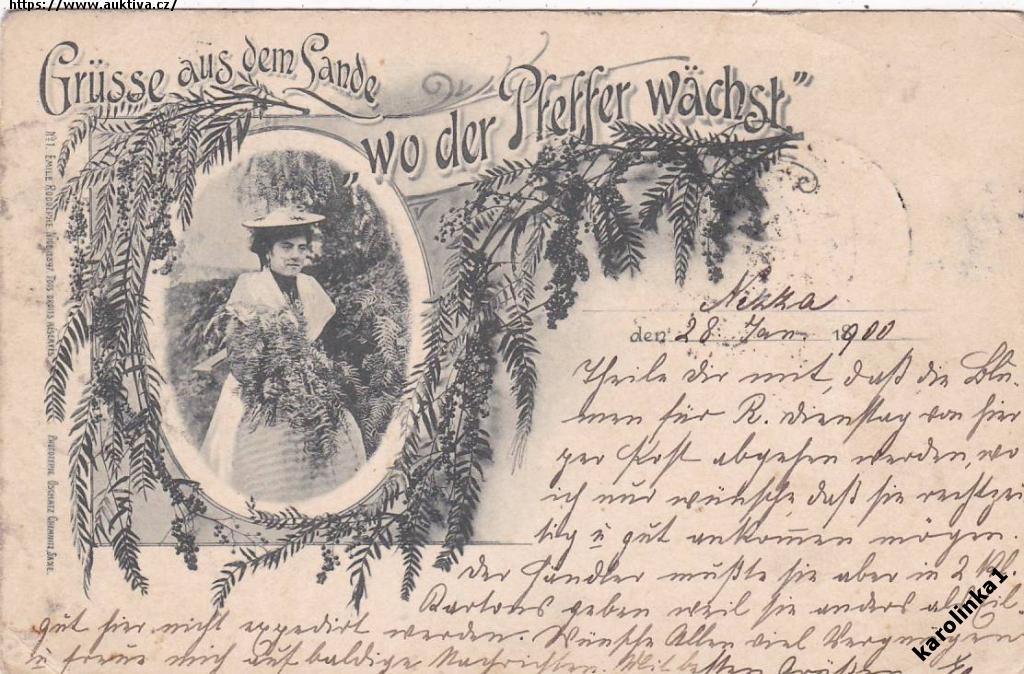 https://www.auktiva.cz/
Grüsse aus dem Sande
„wo der Pfeffer wächst"
No 1. EMILE RODOLPHE, TOUS DROITS RÉSERVÉS
PHOTOTYPIE OSCHATZ CHEMNITZ SAXE.
Nizza
den 28. Jan. 1900
Theile Dir mit, daß die Blu-
men für R. Dienstag von hier
per Post abgehen werden, wo
ich nur wünsche, daß sie rechtzei
tig u gut ankommen mögen.
Der Händler mußte sie aber in 2 
Kartons geben weil sie anders als
gut hier nicht expedirt werden. Wünsche Allen viel Vergnügen
u freue mich auf baldige Nachrichten. Mit besten Grüßen
karolinka1